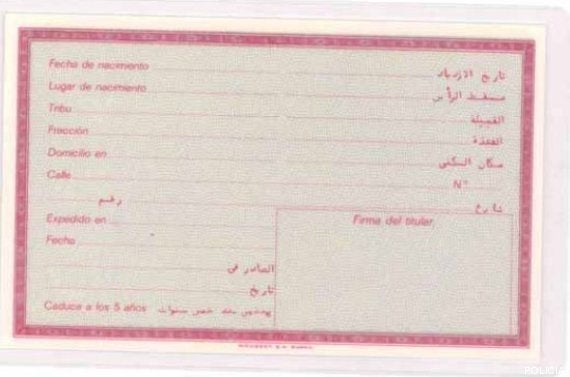 Fecha de nacimiento تاريخ الازدياد
Lugar de nacimiento مسقط الرأس
Tribu القبيلة
Fracción الفخذة
Domicilio en مكان السكنى
Calle شارع
N° رقم
Expedido en الصادر فى
Fecha تاريخ
Caduca a los 5 años خمس سنوات
Firma del titular
POLICIA